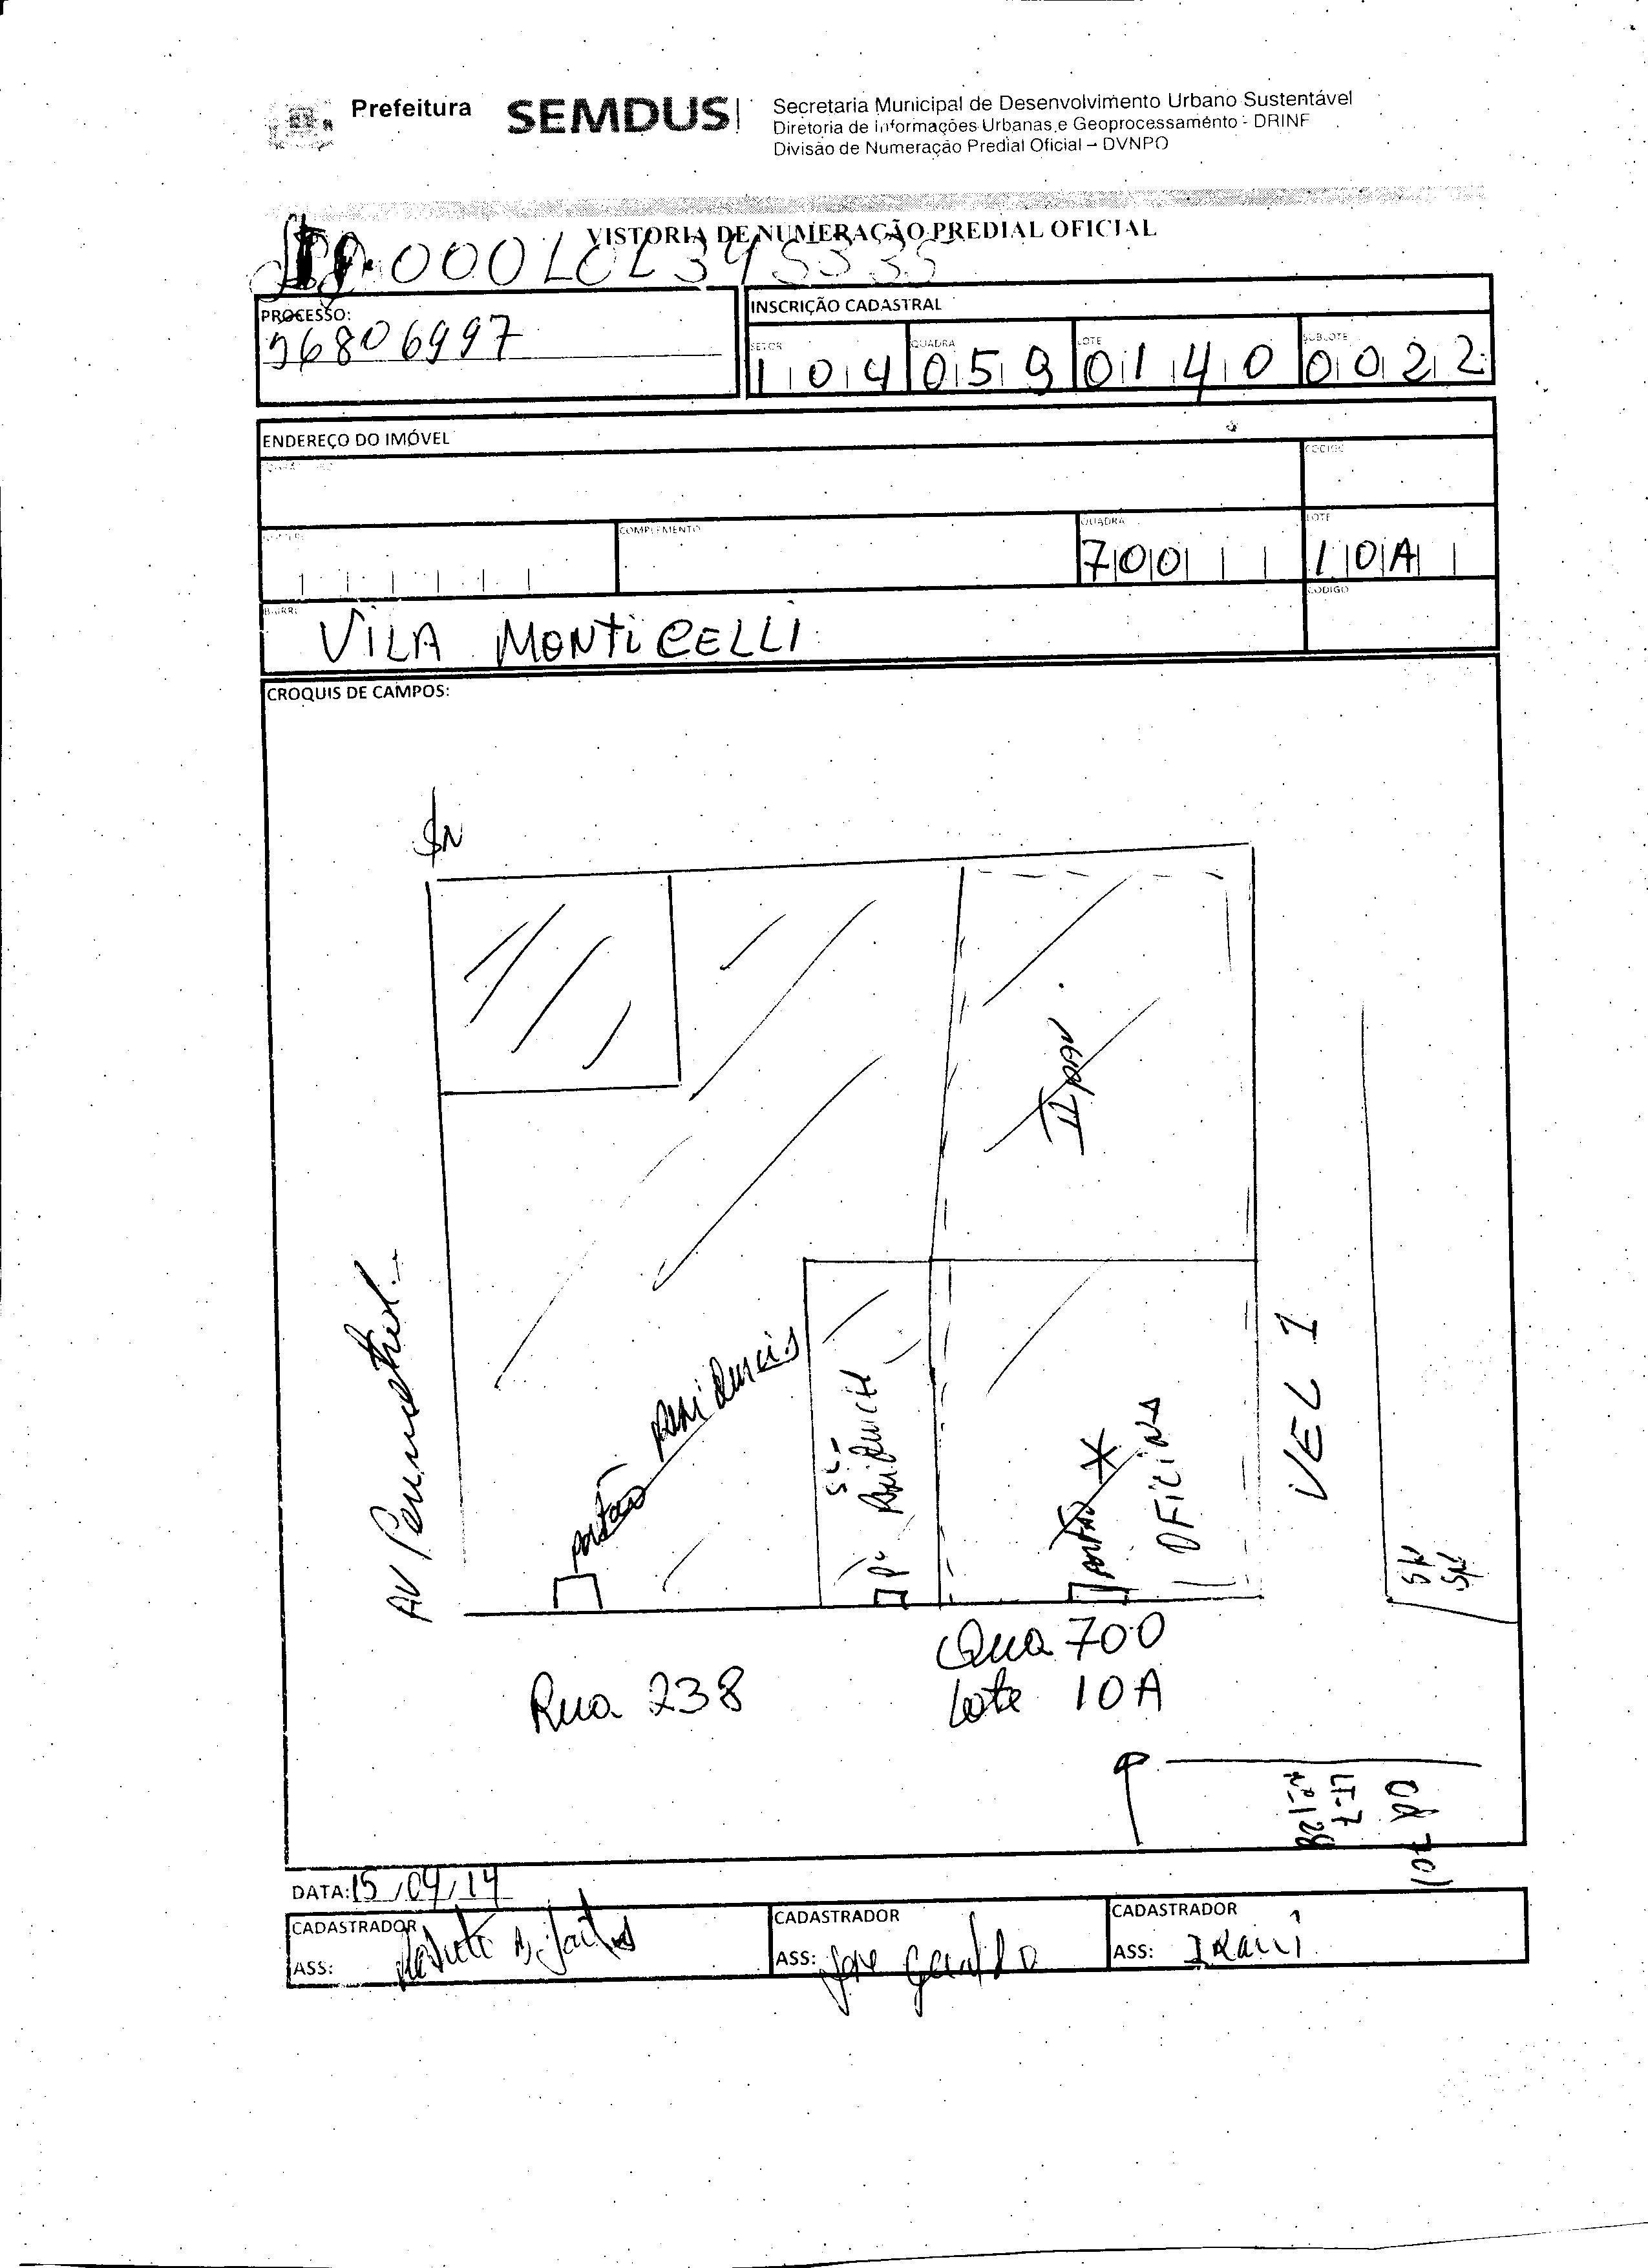 Prefeitura SEMDUS
Secretaria Municipal de Desenvolvimento Urbano Sustentável
Diretoria de Informações Urbanas e Geoprocessamento - DRINF
Divisão de Numeração Predial Oficial – DVNPO
VISTORIA DE NUMERAÇÃO PREDIAL OFICIAL
PROCESSO:
56806997
INSCRIÇÃO CADASTRAL
SETOR QUADRA LOTE SUBLOTE
104 059 0140 0022
ENDEREÇO DO IMÓVEL
CÓDIGO
COMPLEMENTO QUADRA LOTE
700 10A
BAIRRO CÓDIGO
VILA MONTICELLI
CROQUIS DE CAMPOS:
SN
II PAV
AV Perimetral
portão residenciais
Residencia
portão *
OFICINA
VEL 1
SN
SN
Rua 238
Qua 700
Lote 10A
Nº 128
LT-7
QD 701
DATA: 15/04/14
CADASTRADOR CADASTRADOR CADASTRADOR
ASS: ASS: Jose Geraldo ASS: Irani